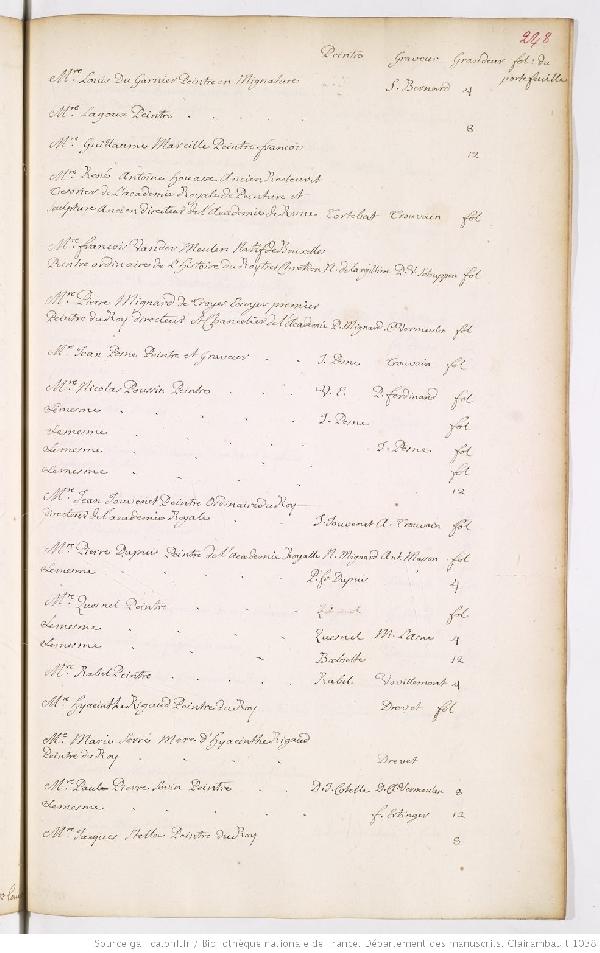 248
Peintre Graveur Grandeur fol: du
portefeuille
Mre Louis Du Garnier Peintre en Mignature S. Bernard 4
Mre Lagoux Peintre 8
Mre Guillaume Mareille Peintre francois 12
Mre René Antoine Houasse Ancien Recteur et
Tresorier de L'academie Royale de Peinture et
sculpture Ancien directeur de l'Academie de Rome Tortebat Trouvain fol
Mre francois Vander Meulen Natif de Bruxelles
Peintre ordinaire de l'histoire du Roy tres Chretien N. de Largilliere P. V. Schuppen fol
Mre Pierre Mignard de Troyes Ecuyer premier
Peintre du Roy directeur et Chancelier de l'Academie P. Mignard C. Vermeulen fol
Mre Jean Pesne Peintre et Graveur J. Pesne Trouvain fol
Mre Nicolas Poussin Peintre V. E. L. ferdinand fol
Lemesme J. Pesne fol
Lemesme J. Pesne fol
Lemesme fol
Lemesme 12
Mre Jean Jouvenet Peintre Ordinaire du Roy
directeur de l'academie Royale J. Jouvenet A. Trouvain fol
Mre Pierre Dupuis Peintre de l'academie Royalle N. Mignard Ant. Masson fol
Lemesme P. fr Dupuis 4
Mre Quesnel Peintre fol
Lemesme Quesnel M. Lasne 4
Lemesme 12
Mre Rabel Peintre Rabel Vouillemont 4
Mre Hyacinthe Rigaud Peintre du Roy Drevet fol
Me Marie Serre Mere d'Hyacinthe Rigaud
Peintre du Roy Drevet
Mre Paul Pierre Sevin Peintre Vermeulen 8
Lemesme f. Ertinger 12
Mre Jacques Stella Peintre du Roy 8
Source gallica.bnf.fr / Bibliothèque nationale de France. Département des manuscrits. Clairambault 1038